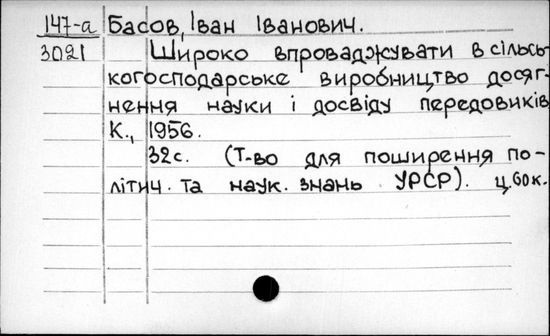 147-а Басов, Іван Іванович.
3021 Широко впроваджувати в сільсь-
когосподарське виробництво досяг-
нення науки і досвіду передовиків
К., 1956.
32с. (Т-во для поширення по-
літич. та наук. знань УРСР). ц.60к.